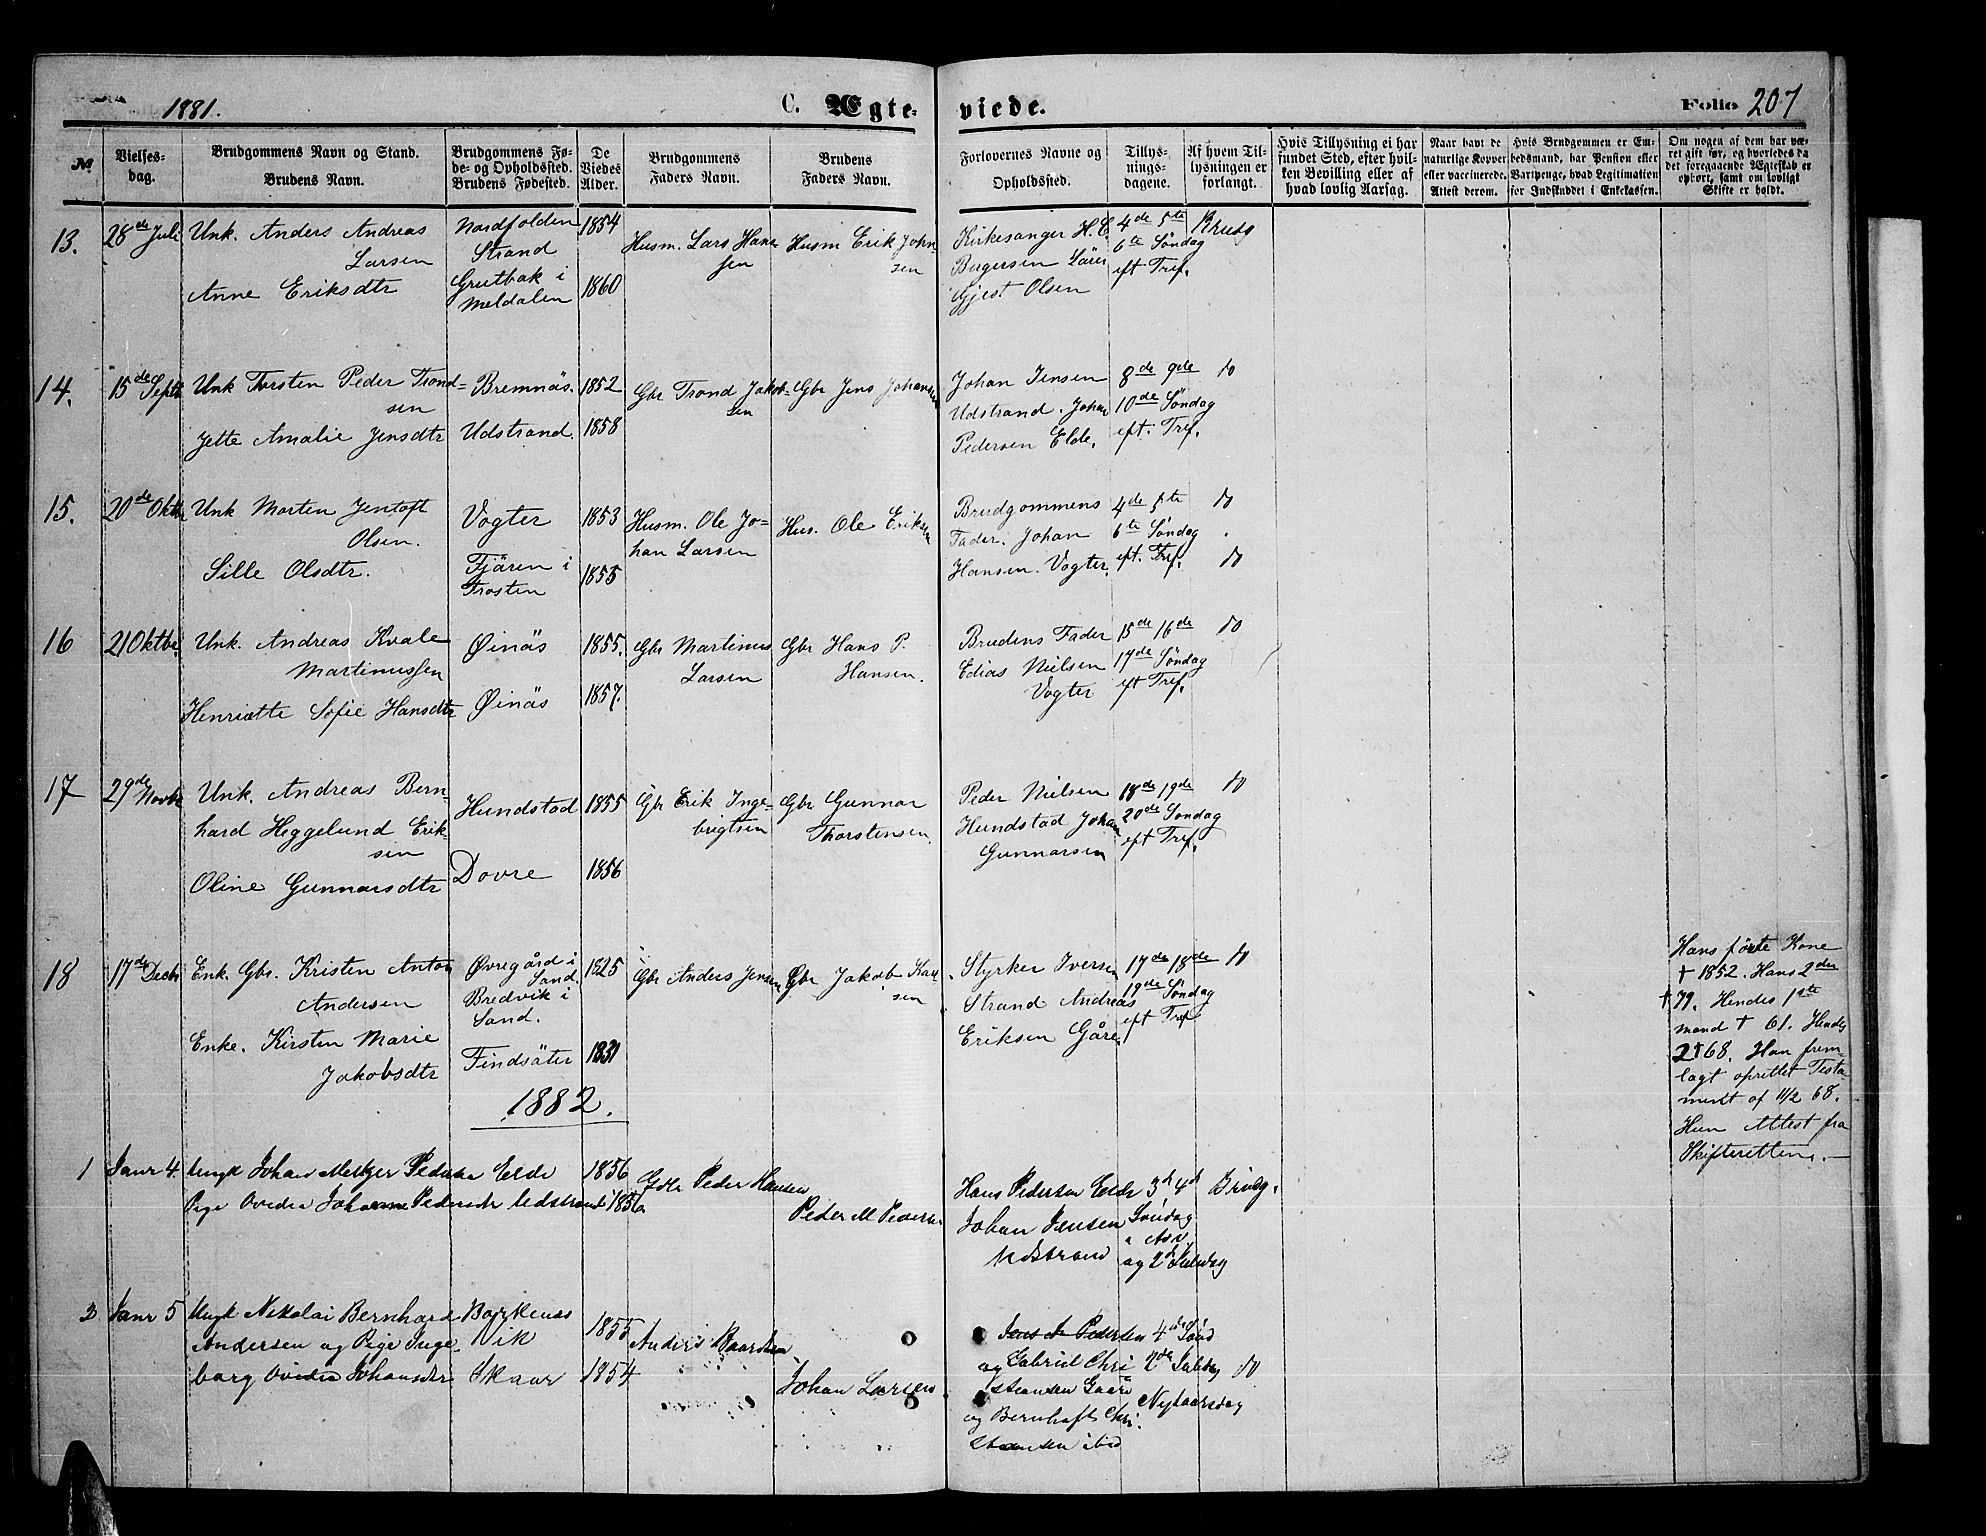 1881.
C. Ægte-
viede.
Folio 207
№
Vielses-
dag.
Brudgommens Navn og Stand.
Brudens Navn.
Brudgommens Fø-
de- og Opholdssted.
Brudens Fødested.
De
Viedes
Alder.
Brudgommens
Faders Navn.
Brudens
Faders Navn.
Forlovernes Navne og
Opholdssted.
Tillys-
nings-
dagene.
Af hvem Til-
lysningen er
forlangt.
Hvis Tillysning ei har
fundet Sted, efter hvil-
ken Bevilling eller af
hvad lovlig Aarsag.
Naar havt de
naturlige Kopper
eller vaccinerede.
Attest derom.
Hvis Brudgommen er Em-
bedsmand, har Pension eller
Vartpenge, hvad Legitimation
for Indskuddet i Enkekassen.
Om nogen af dem har væ-
ret gift før, og hvorledes da
det foregaaende Ægteskab er
ophørt, samt om lovligt
Skifte er holdt.
13.
28de Juli
Unk. Anders Andreas
Larsen
Anne Eriksdtr
Nordfolden
Strand
Grutbak i
Meldalen
1854
1860
Husm. Lars Han-
sen
Husm Erik John-
sen
Kirkesanger H. C.
Bergersen
Gjest Olsen
4de 5te
6te Søndag
eft Tref.
Brudg
14.
15de Septb
Unk Thorsten Peder Trond-
sen
Jette Amalie Jensdtr
Bremnäs.
Udstrand.
1852
1858
Gbr Trond Jakob-
sen
Gbr Jens Johansen
Johan Jensen
Udstrand. Johan
Pedersen Elde.
8de 9de
10de Søndag
eft. Tref.
do
15.
20de Oktbr
Unk Morten Jentoft
Olsen.
Sille Olsdtr.
Vogter
Fjären i
Trosten
1853
1855
Husm. Ole Jo-
han Larsen
Hus. Ole Eriksen
Brudgommens
Fader. Johan
Hansen. Vogter.
4de 5te
6te Søndag
eft. Tref.
do
do
16
21 Oktbr.
Unk. Andreas Kvale
Martinussen
Henriette Sofie Hansdtr
Øinäs
Øinäs
1855.
1857.
Gbr Martinus
Larsen
Gbr Hans P.
Hansen.
Brudens Fader
Edias Nielsen
Vogter
15de 16de
17de Søndag
eft Tref.
do
17
29de Novbr
Unk. Andreas Bern-
hard Heggelund Erik-
sen
Oline Gunnarsdtr
Hundstad
Dovre
1855
1856
Gbr Erik Inge-
brigtsen
Gbr Gunnar
Thorstensen.
Peder Nielsen
Hundstad Johan
Gunnarsen
18de 19de
20de Søndag
eft Tref.
do
18
17de Decbr
Enk. Gbr. Kristen Anton
Andersen
Enke. Kirsten Marie
Jakobsdtr
Øvregård i
Sand.
Bredvik i
Sand.
Findsäter
1825
1831
Gbr Anders Jensen
Gbr Jakob Karl-
sen
Styrker Iversen
Strand Andreas
Eriksen Gåre.
17de 18de
19de Søndag
eft Tref
do
Hans første Kone
† 1852. Hans 2den
† 79. Hendes 1ste
mand † 61. Hendes
2† 68. Han frem-
lagt oprettet Testa-
ment af 11/2 68.
Hun Attest fra
Skifteretten.
1882.
1
Janr 4.
Ungk Johan Metzer Pedersen
Pige Ovedia Johanne Pedersdtr
Elde
Udstrand
1856
1856
Gdbr Peder Hansen
Peder M Pedersen
Hans Pedersen Elde
Johan Jensen
Udstrand
3d 4d
Søndag
i Adv
og 2d Juledag
Brudg.
2
Janr 5
Ungk Nikolai Bernhard
Andersen og Pige Inge-
borg Ovedia Johansdtr
Vik
Skaar
1855
1854
Anders Baardsen
Johan Larsen
Jens A Pedersen
og Gabriel Chri
stiansen Gaare
og Bernhoft Chri-
stiansen ibid
4de Sønd
2de Juledag
Nytaarsdag
do